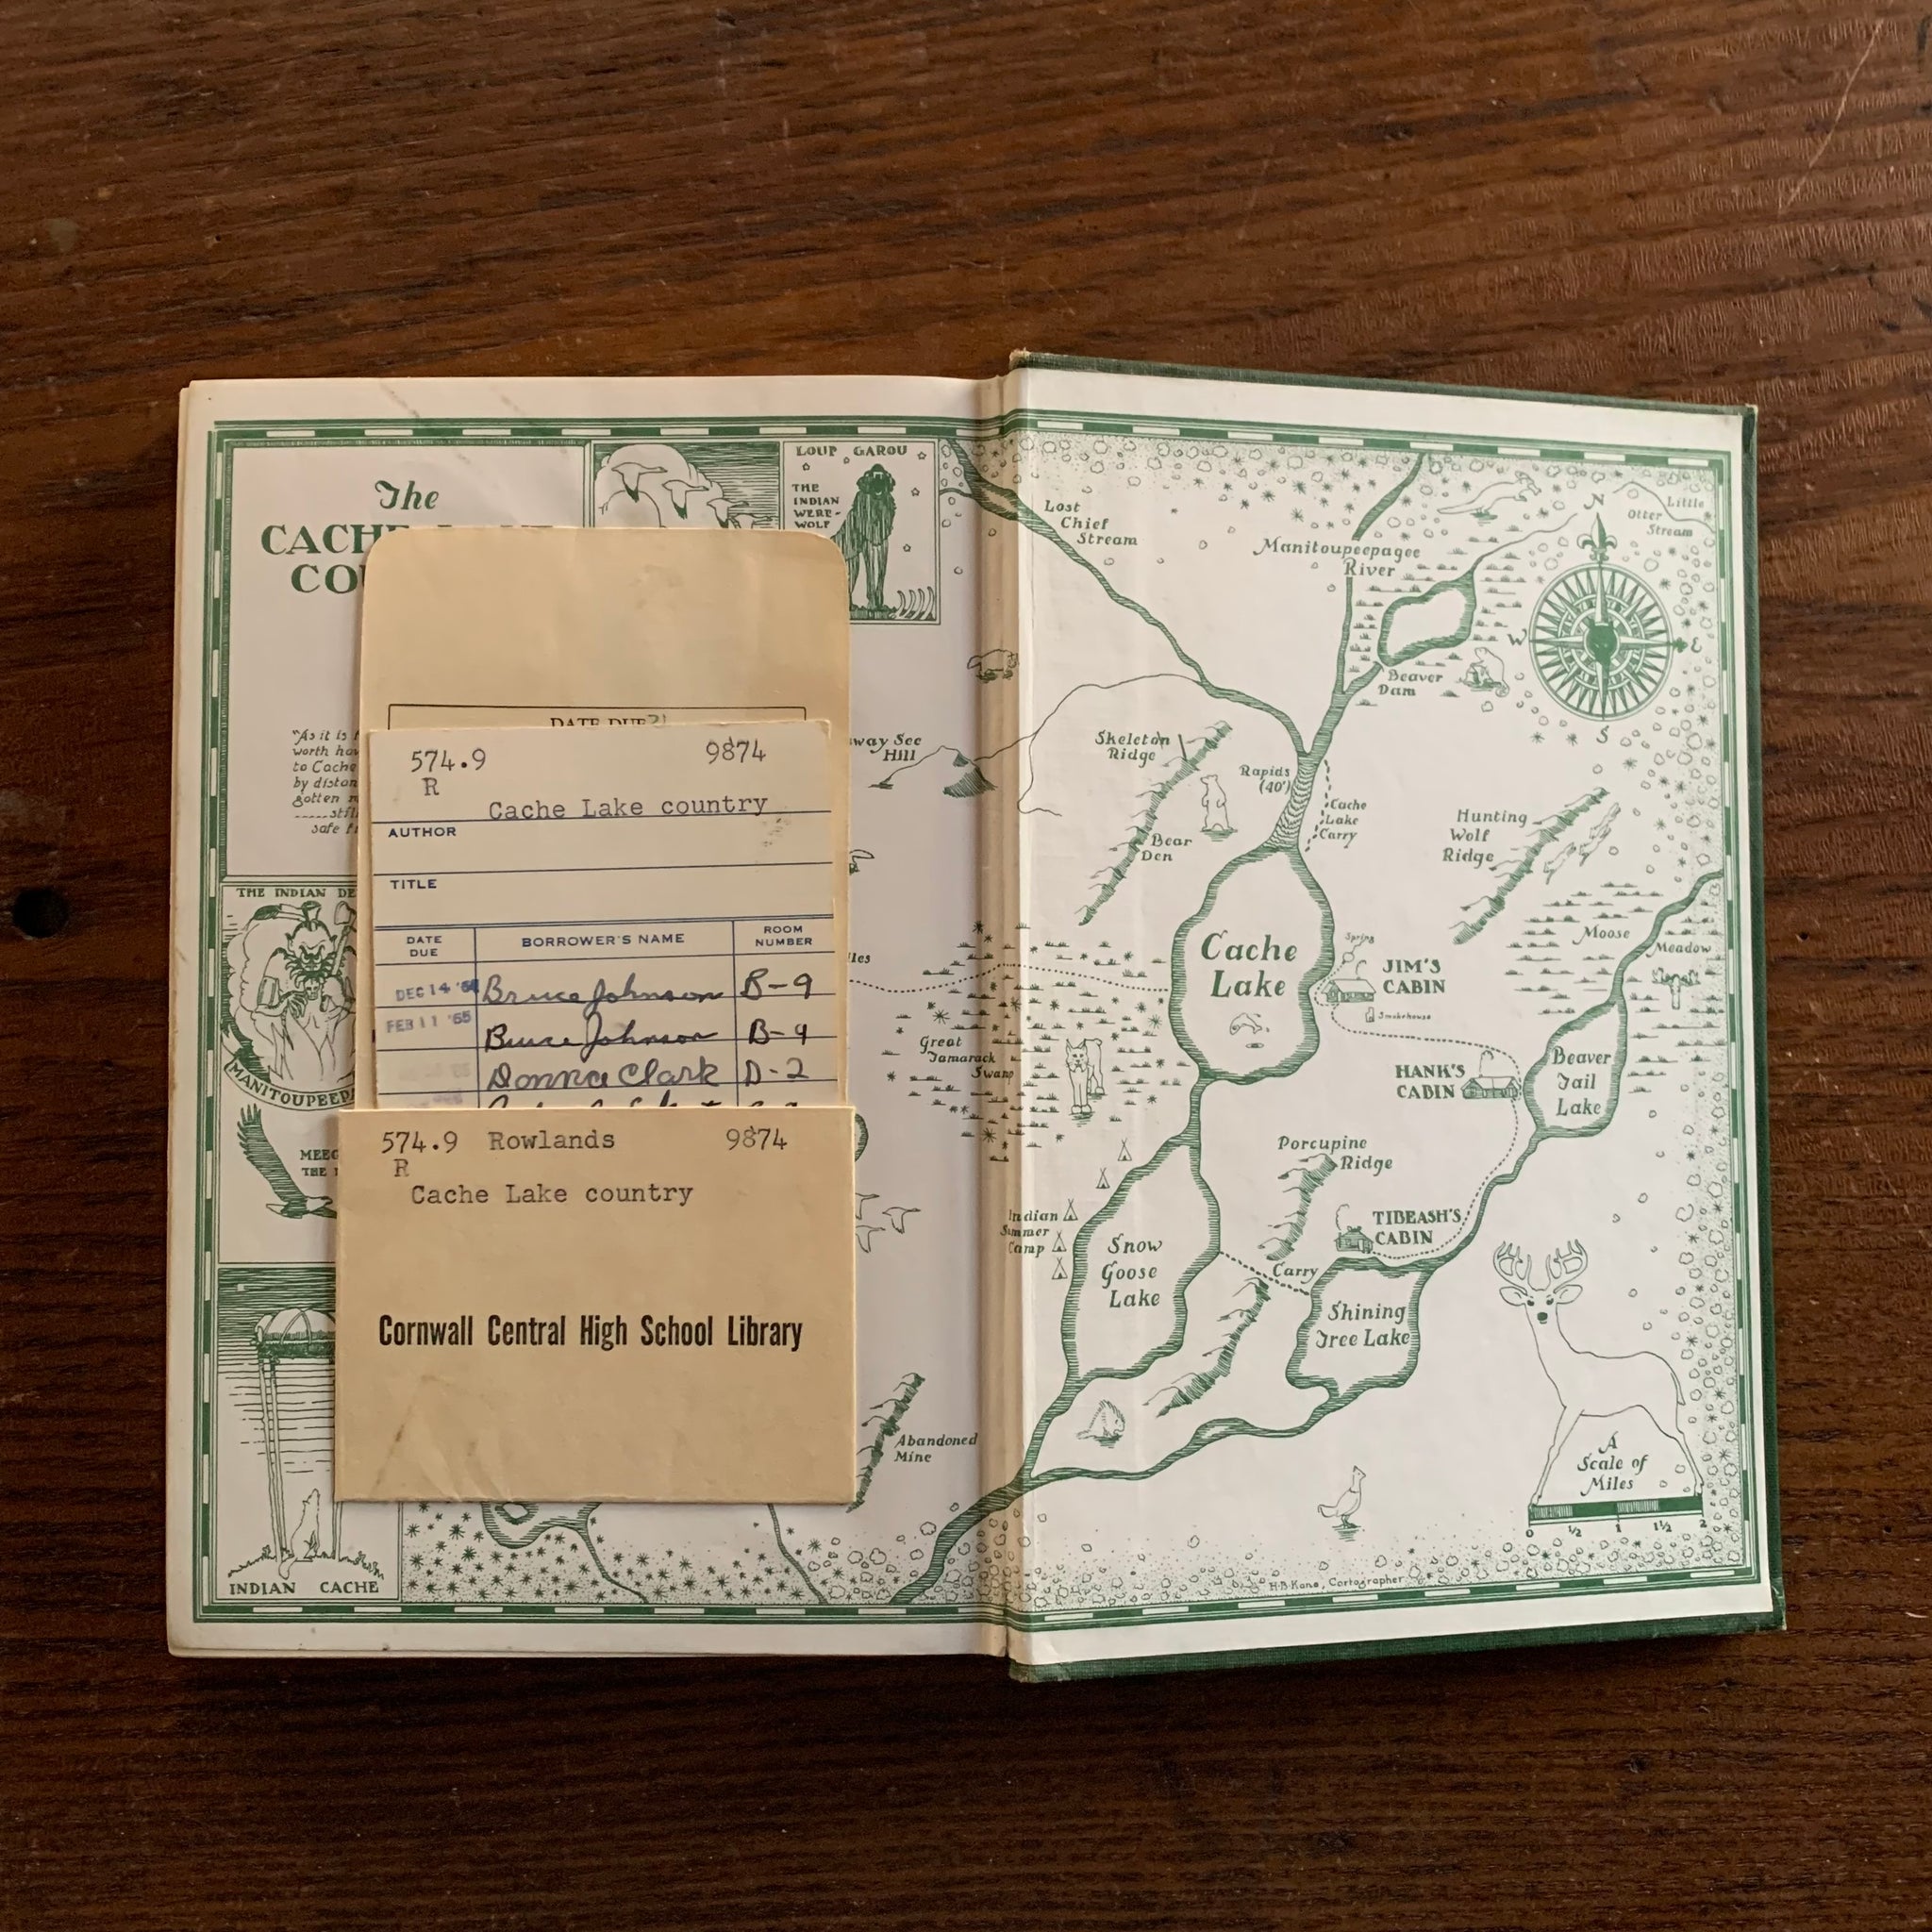 The
CACHE
CO
LOUP GAROU
THE
INDIAN
WERE-
WOLF
"As it is
worth
to Cache
by distan
gotten
safe
THE INDIAN DE
MANITOUPEEP
MEEG
THE
INDIAN CACHE
DATE DUE
574.9 9874
R
Cache Lake country
AUTHOR
TITLE
DATE DUE BORROWER'S NAME ROOM NUMBER
DEC 14 '64 Bruce Johnson B-9
FEB 11 '65 Bruce Johnson B-9
Donna Clark D-2
574.9 Rowlands 9874
R
Cache Lake country
Cornwall Central High School Library
way See
Hill
les
Great
Tamarack
Swamp
Abandoned
Mine
Lost
Chief
Stream
Manitoupeepagee
River
Little
Otter
Stream
N
W E
S
Beaver
Dam
Skeleton
Ridge
Rapids
(40')
Cache
Lake
Carry
Bear
Den
Hunting
Wolf
Ridge
Moose
Meadow
Cache
Lake
Spring
JIM'S
CABIN
Smokehouse
HANK'S
CABIN
Beaver
Tail
Lake
Porcupine
Ridge
Indian
Summer
Camp
TIBEASH'S
CABIN
Snow
Goose
Lake
Carry
Shining
Tree Lake
A
Scale of
Miles
0 ½ 1 1½ 2
H·B·Kane, Cartographer